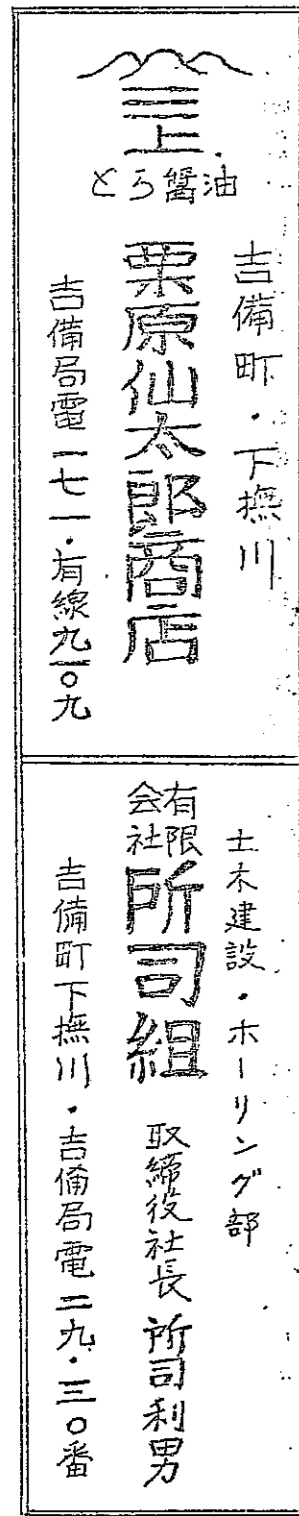 三上
とら醤油
吉備町・下撫川
栗原仙太郎商店
吉備局電一七一・有線九一〇九
土木建設・ホーリング部
有限会社 所司組 取締役社長 所司利男
吉備町下撫川・吉備局電二九・三〇番